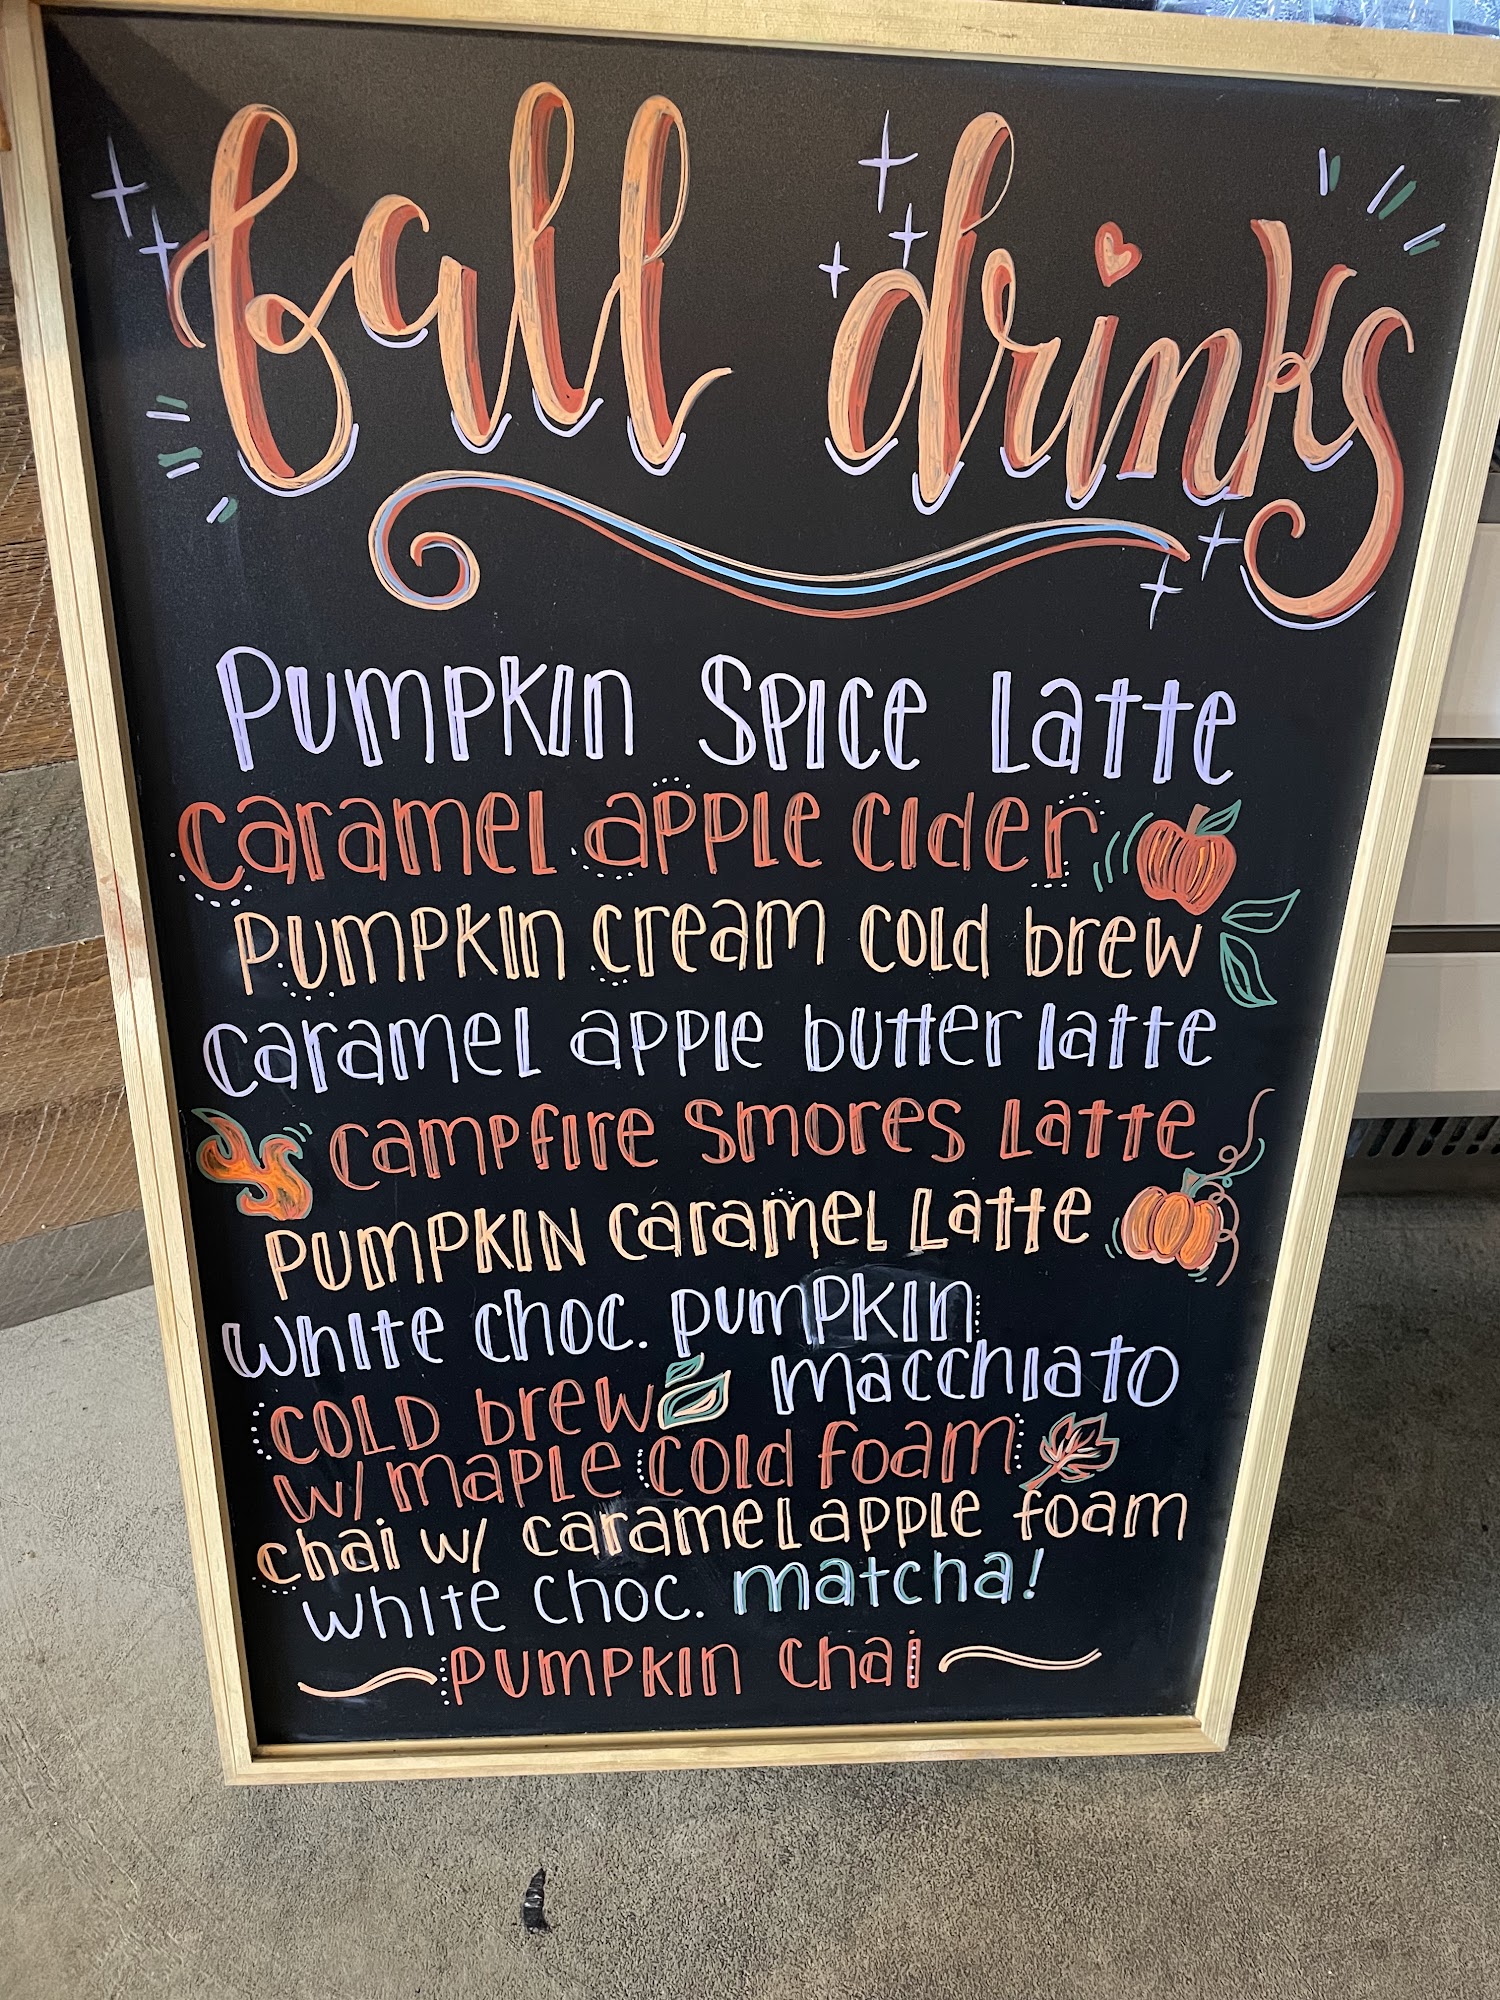 fall drinks
Pumpkin Spice Latte
Caramel apple Cider
Pumpkin Cream Cold brew
Caramel apple butter latte
Campfire Smores Latte
Pumpkin Caramel Latte
White Choc. Pumpkin
macchiato
COLD brew
w/ maple Cold foam
Chai w/ caramel apple foam
White Choc. matcha!
Pumpkin Chai